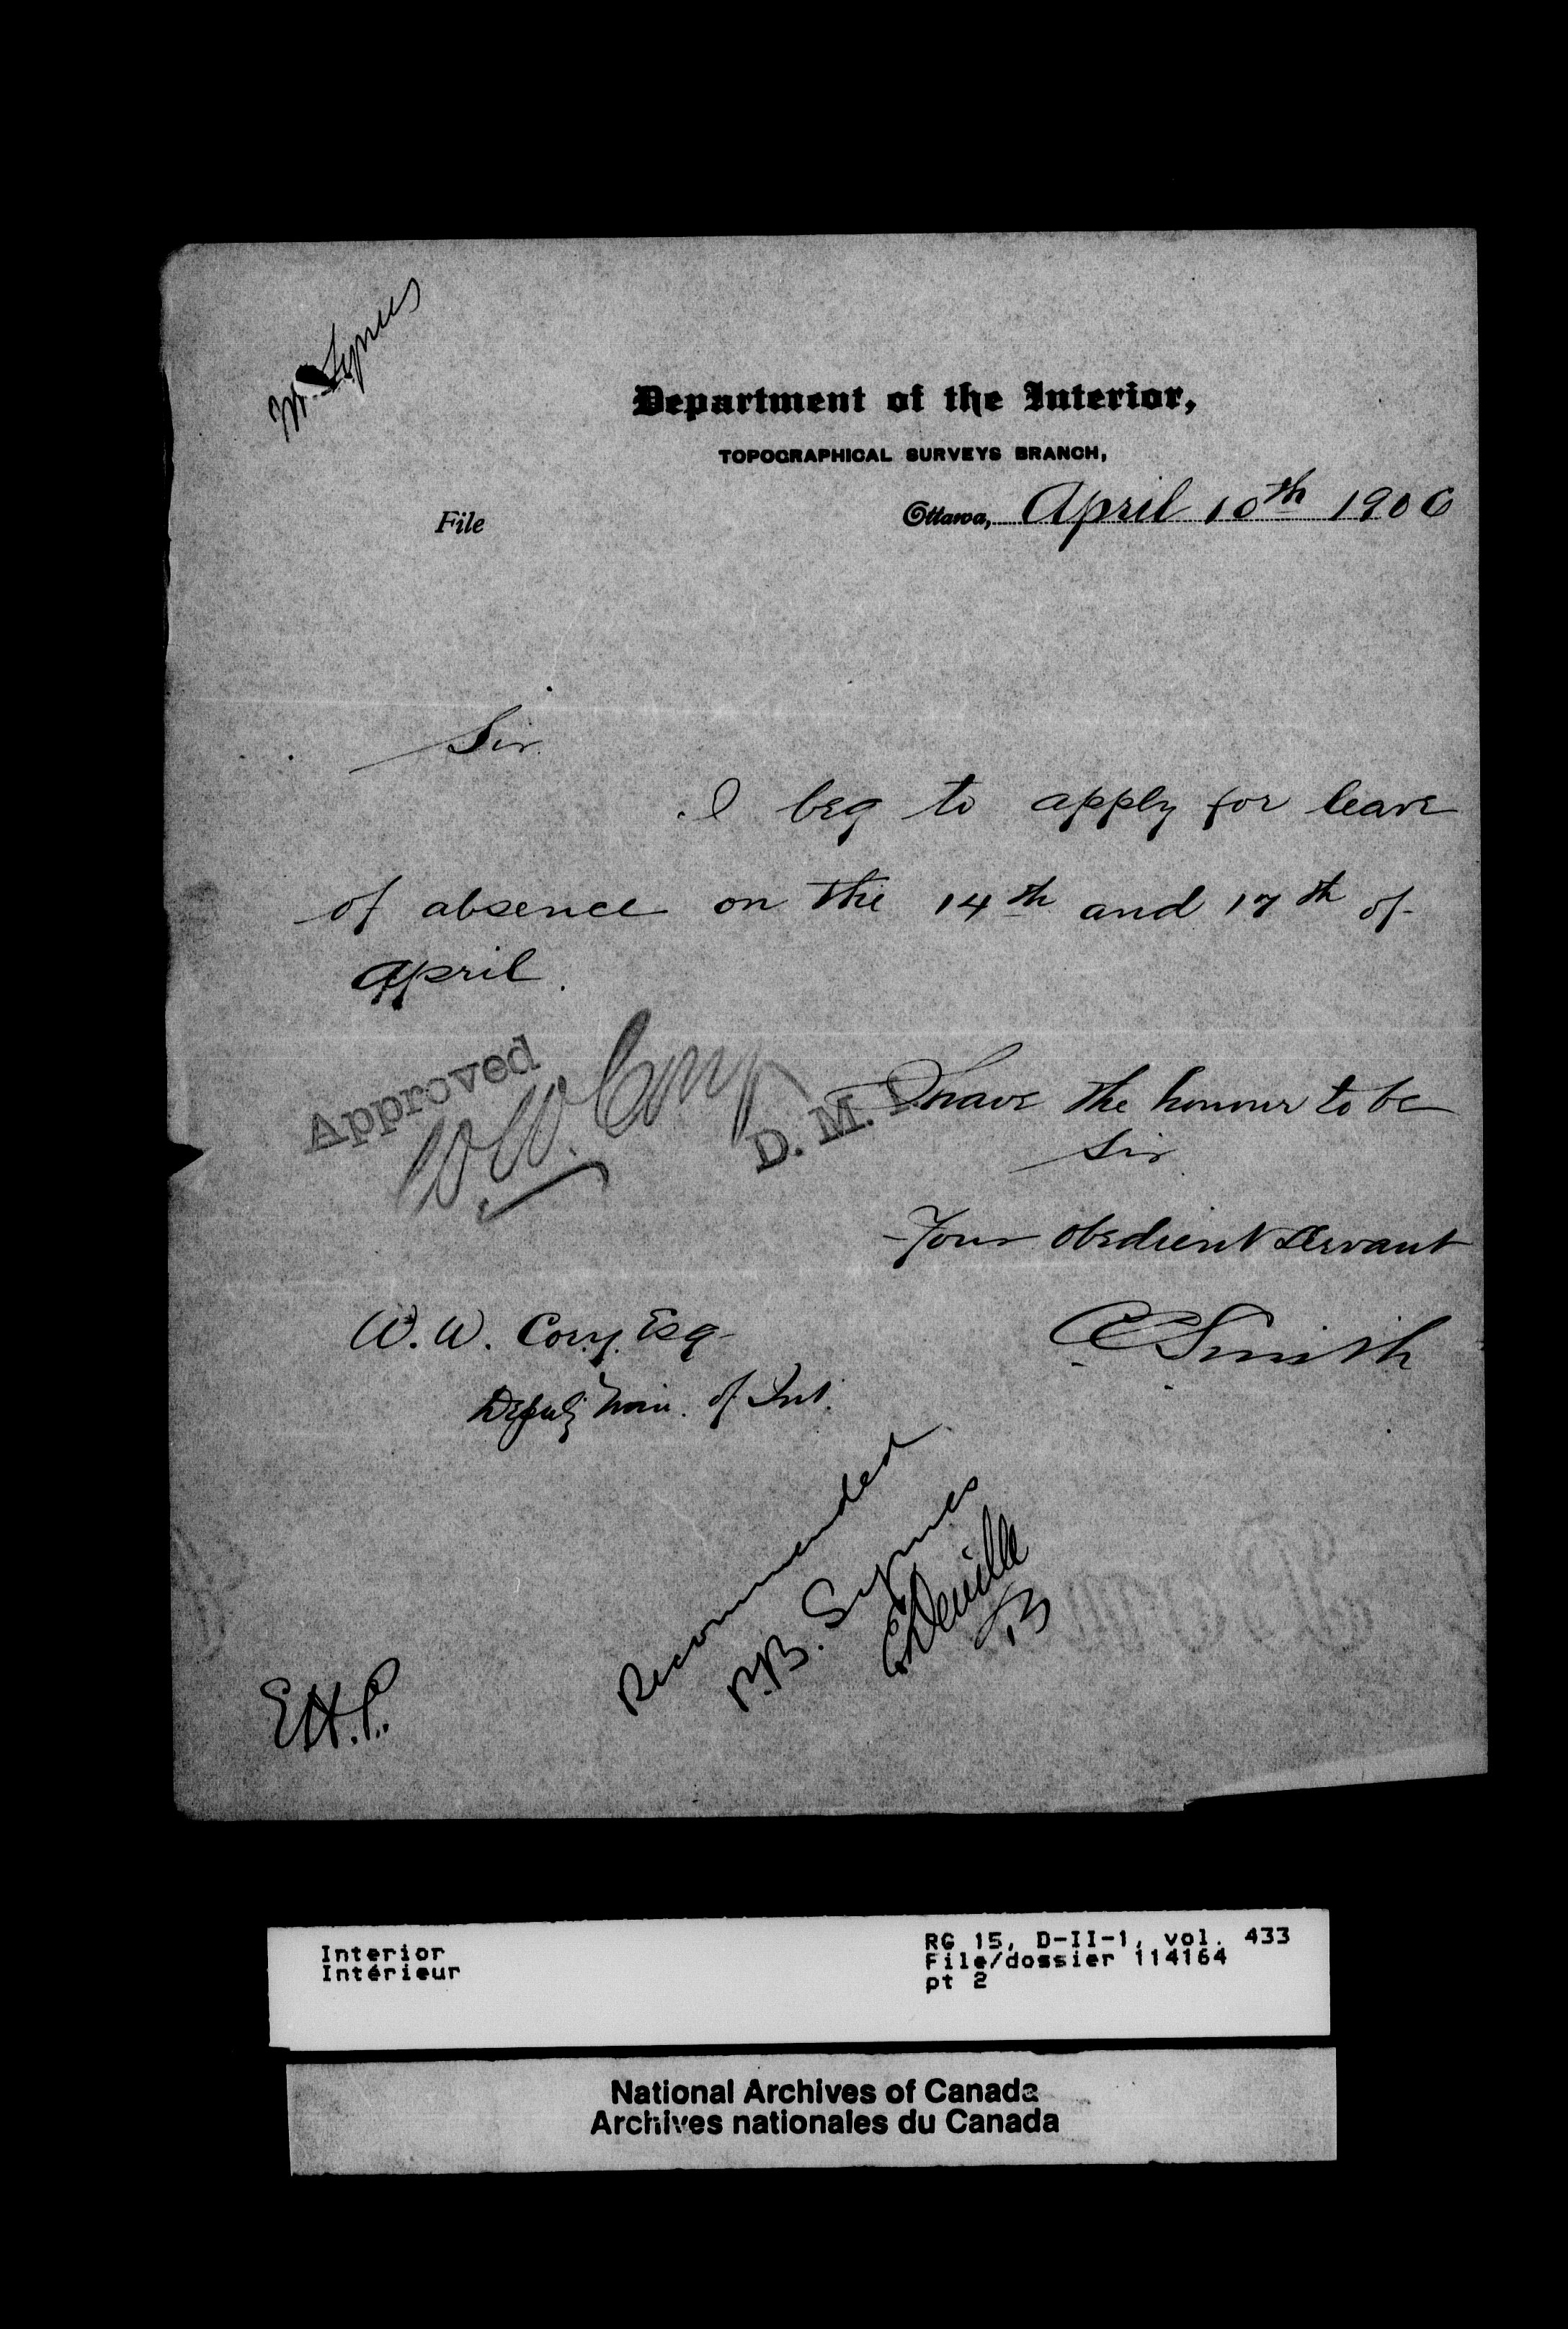 Mr. Symes
Department of the Interior,
TOPOGRAPHICAL SURVEYS BRANCH,
File
Ottawa, April 10th 1906
Sir
I beg to apply for leave
of absence on the 14th and 17th of
April.
Approved
W.W. Cory
D. M. I.
I have the honour to be
Sir
Your obedient servant
W. W. Cory. Esq
C Smith
Deputy Min. of Int.
Recommended
P.B. Symes
E Deville
E.H.P.
Interior
Intérieur
RG 15, D-II-1, vol. 433
File/dossier 114164
pt 2
National Archives of Canada
Archives nationales du Canada